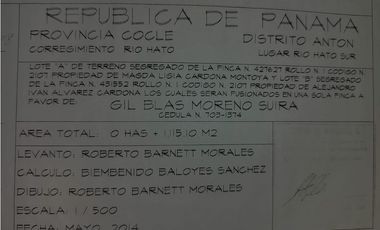 REPUBLICA DE PANAMA
PROVINCIA COCLE DISTRITO ANTON
CORREGIMIENTO RIO HATO LUGAR RIO HATO SUR
LOTE "A" DE TERRENO SEGREGADO DE LA FINCA N. 427627 ROLLO N. 1 CODIGO N.
2107 PROPIEDAD DE MAGDA LIGIA CARDONA MONTOYA Y LOTE "B" SEGREGADO
DE LA FINCA N. 451552 ROLLO N. 1 CODIGO N. 2107 PROPIEDAD DE ALEJANDRO
IVAN ALVAREZ CARDONA LOS CUALES SERAN FUSIONADOS EN UNA SOLA FINCA A
FAVOR DE:
GIL BLAS MORENO SUIRA
CEDULA N. 703-1374
AREA TOTAL: 0 HAS + 1,115.10 M2
LEVANTO: ROBERTO BARNETT MORALES
CALCULO: BIEMBENIDO BALOYES SANCHEZ
DIBUJO: ROBERTO BARNETT MORALES
ESCALA: 1 / 500
FECHA: MAYO, 2014